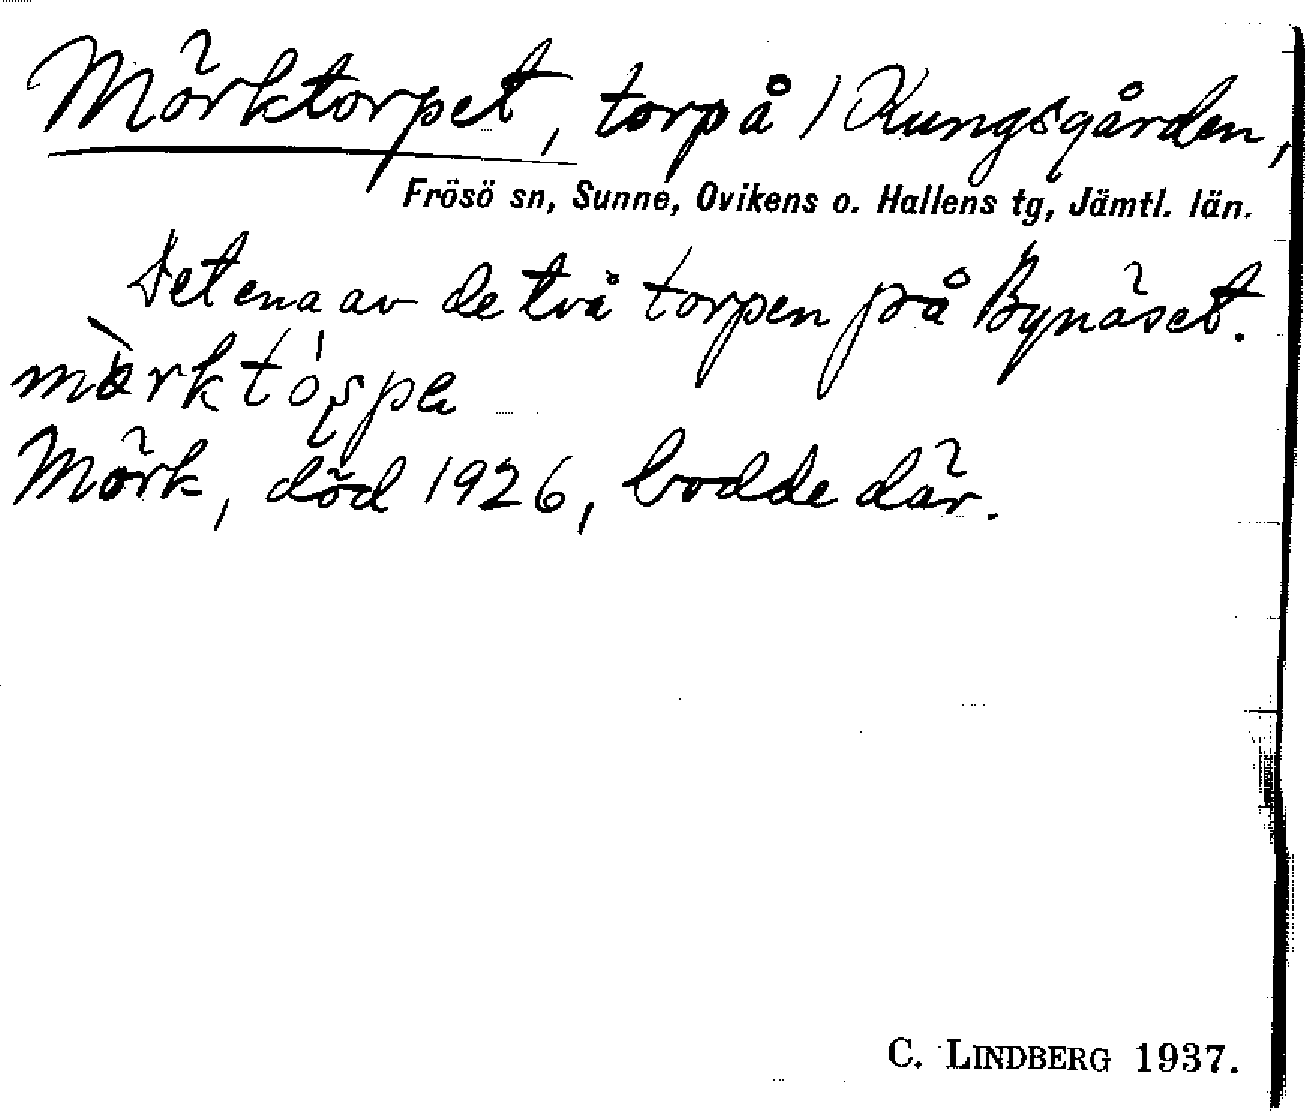 Mörktorpet, torp å / Kungsgården,
Frösö sn, Sunne, Ovikens o. Hallens tg, Jämtl. län.
Det ena av de två torpen på Bynäset.
Mörk, död 1926, bodde där.
C. LINDBERG 1937.